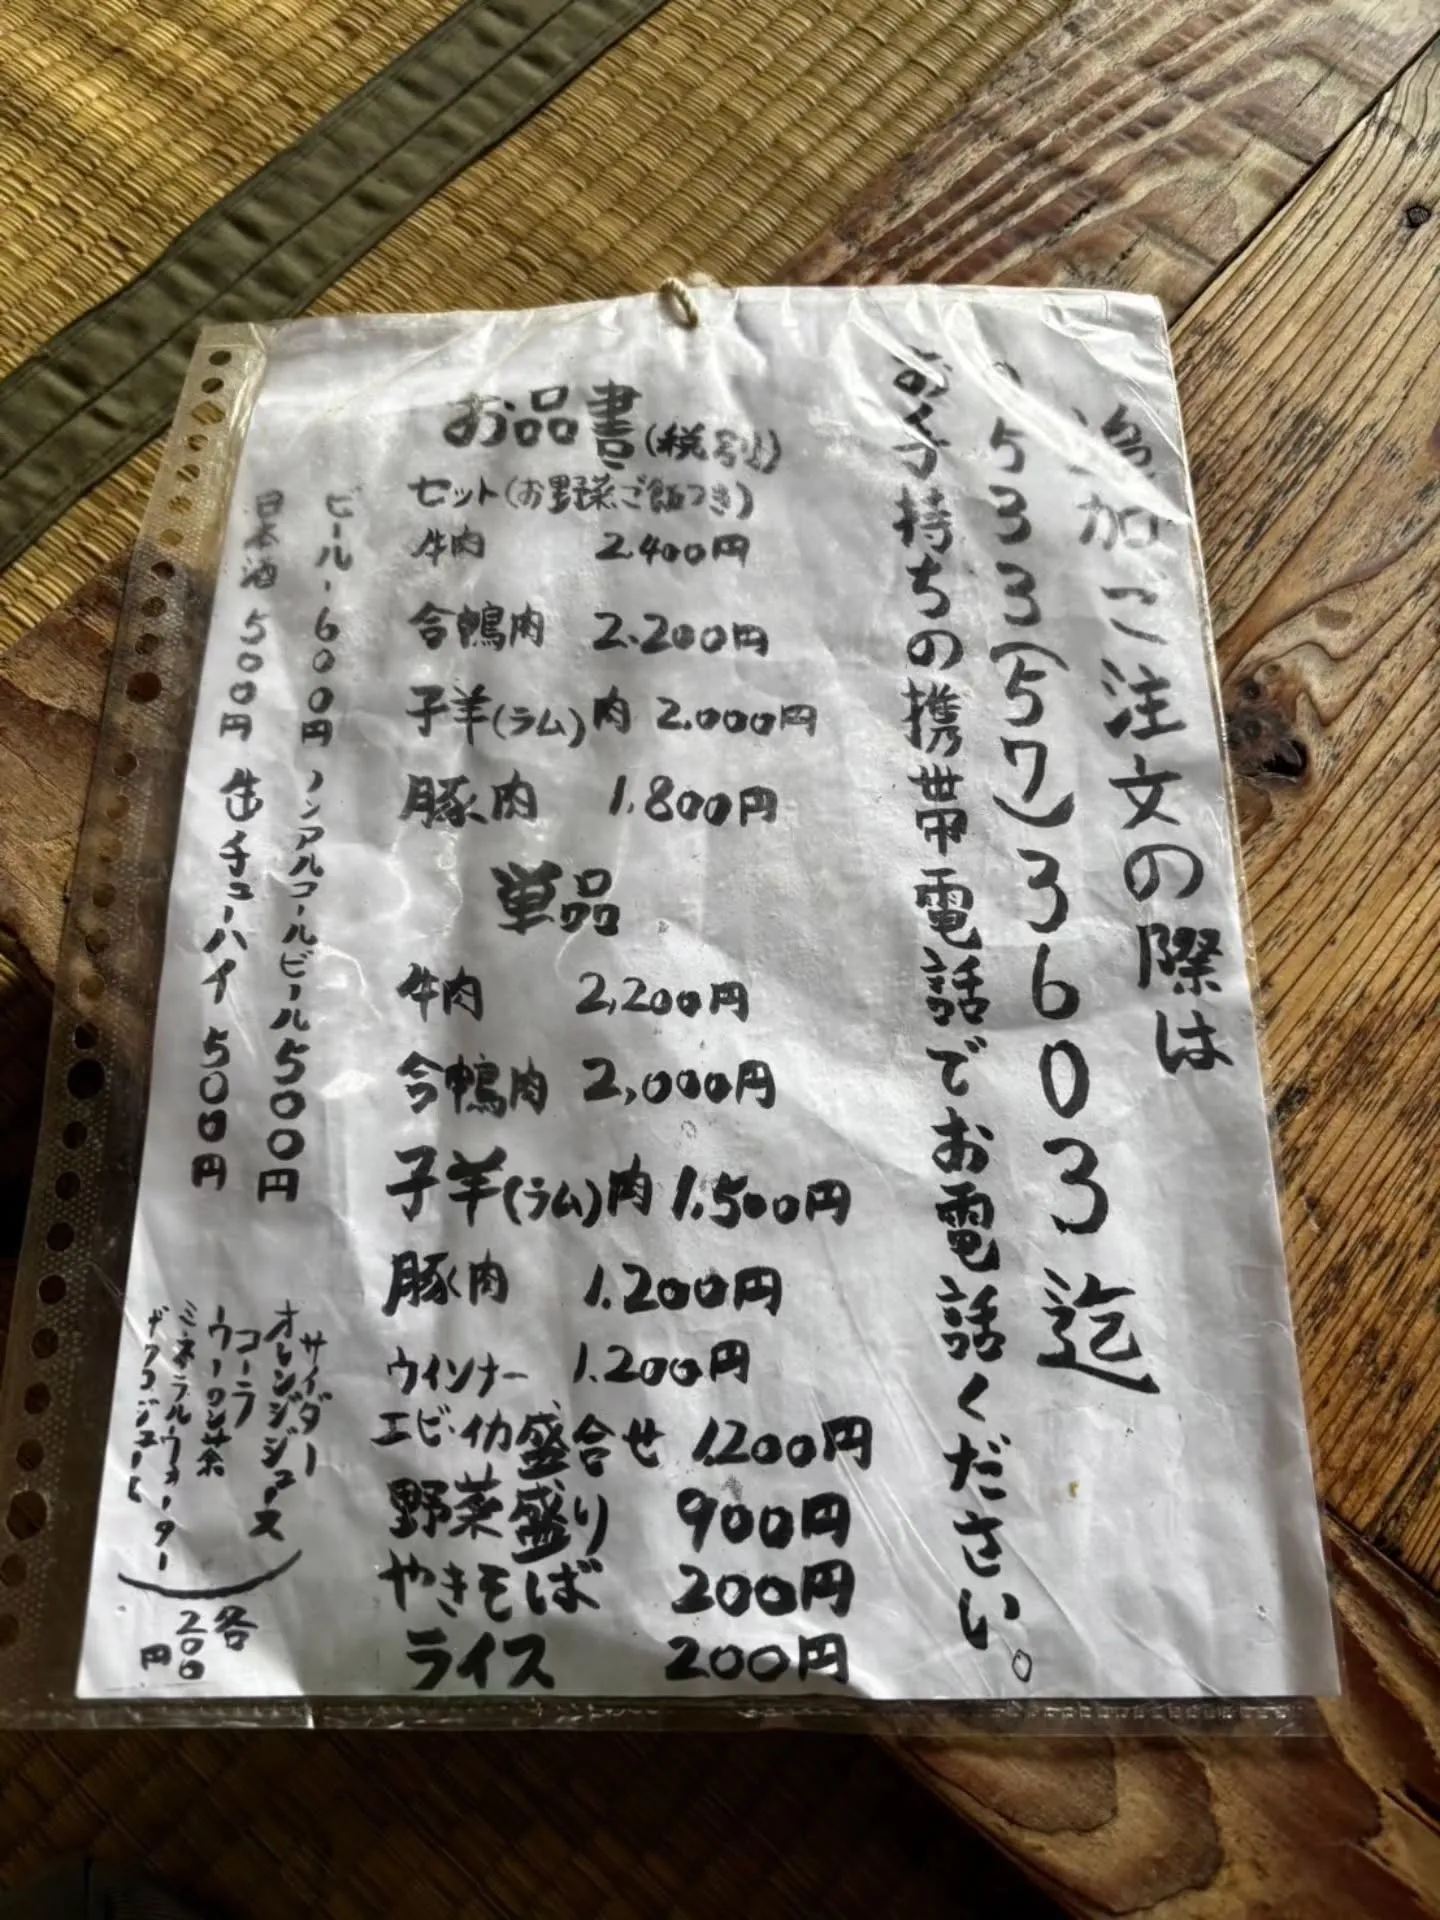 追加ご注文の際は
0533(57)3603迄
お手持ちの携帯電話でお電話ください。
お品書(税別)
セット(お野菜ご飯つき)
牛肉 2.400円
合鴨肉 2.200円
子羊(ラム)肉 2.000円
豚肉 1.800円
単品
牛肉 2,200円
合鴨肉 2,000円
子羊(ラム)肉 1.500円
豚肉 1.200円
ウインナー 1.200円
エビ・イカ盛合せ 1.200円
野菜盛り 900円
やきそば 200円
ライス 200円
ビール 600円 ノンアルコールビール500円
日本酒 500円 缶チューハイ 500円
サイダー
オレンジジュース
コーラ
ウーロン茶
ミネラルウォーター
各200円